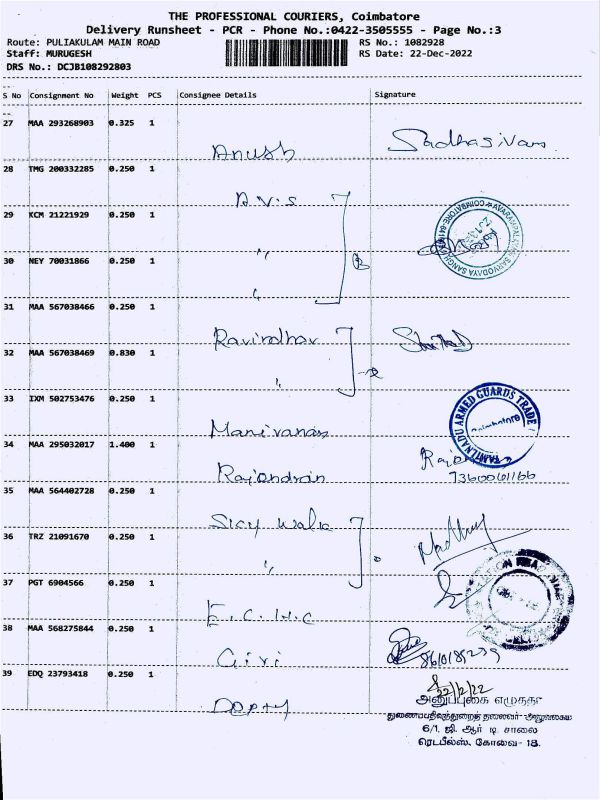 THE PROFESSIONAL COURIERS, Coimbatore
Delivery Runsheet - PCR - Phone No.:0422-3505555 - Page No.:3
Route: PULIAKULAM MAIN ROAD RS No.: 1082928
Staff: MURUGESH RS Date: 22-Dec-2022
DRS No.: DCJB108292803
S No Consignment No Weight PCS Consignee Details Signature
27 MAA 293268903 0.325 1
Anush Sadhasivam
28 TMG 200332285 0.250 1
A.V.S
29 KCM 21221929 0.250 1
"
30 NEY 70031866 0.250 1
"
31 MAA 567038466 0.250 1
Ravindhar
32 MAA 567038469 0.830 1
"
33 IXM 502753476 0.250 1
TAMILNADU ARMED GUARDS TRADE
Coimbatore
Manivanan
34 MAA 295032017 1.400 1
Rajendran
35 MAA 564402728 0.250 1
36 TRZ 21091670 0.250 1
" Madhu
37 PGT 6904566 0.250 1
E.C.H.C
38 MAA 568275844 0.250 1
Giri
39 EDQ 23793418 0.250 1
22/12/22
Depty
அனுப்புகை எழுத்தர்
துணைப்பதிவுத்துறைத் தலைவர் அலுவலகம்
6/1, ஜி. ஆர் டி சாலை
ரெட்பீல்ஸ், கோவை - 18.